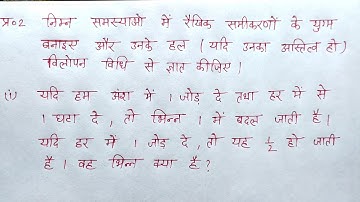 प्र०2 निम्न समस्याओं में रैखिक समीकरणों के युग्म
बनाइए और उनके हल ( यदि उनका अस्तित्व हो )
विलोपन विधि से ज्ञात कीजिए ।
(i) यदि हम अंश में 1 जोड़ दे तथा हर में से
1 घटा दे , तो भिन्न 1 में बदल जाती है।
यदि हर में 1 जोड़ दे , तो यह 1/2 हो जाती
है । वह भिन्न क्या है ?